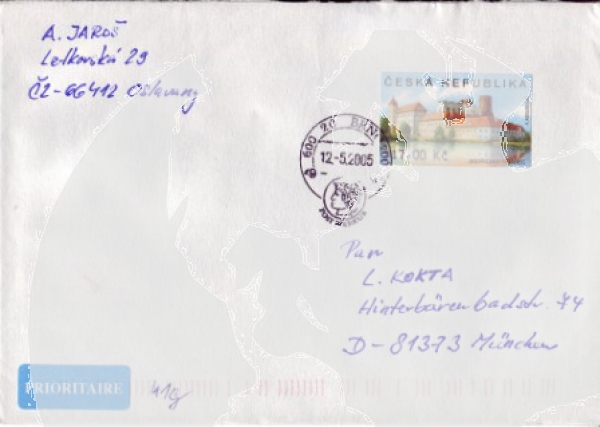 A. JAROŠ
Letkovská 29
CZ-66412 Oslavany
ČESKÁ REPUBLIKA
17.00 Kč
600 20 BRN
12.-5.2005
Pan
L. KOKTA
Hinterbärenbadstr. 74
D-81373 München
PRIORITAIRE
41g